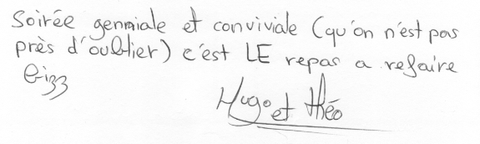 Soirée genmiale et conviviale (qu'on n'est pas
près d'oublier) c'est LE repas a refaire
Bizz
Hugo et théo